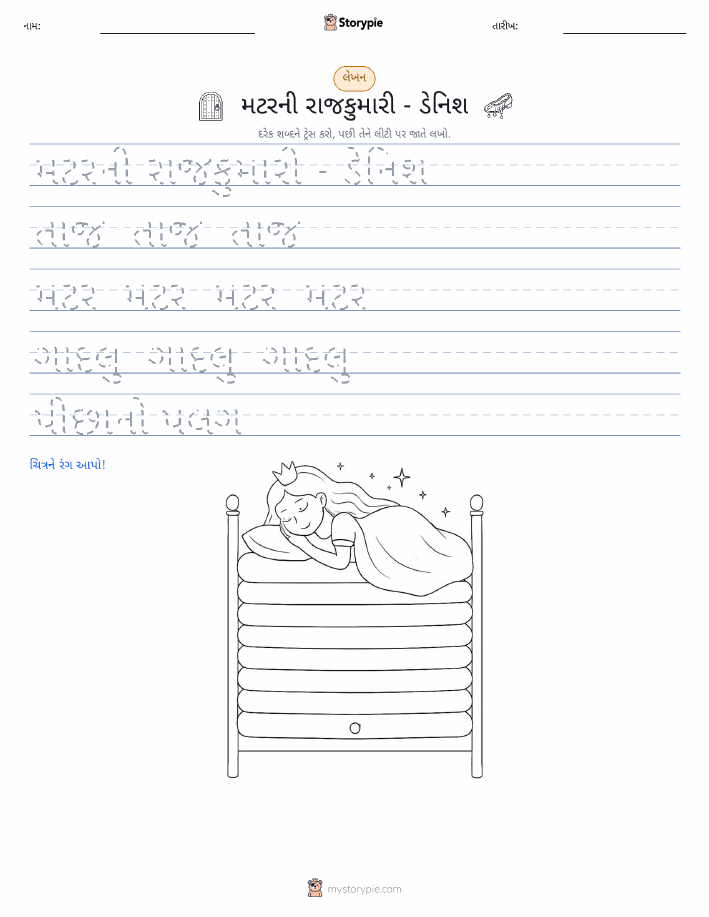 નામ:
Storypie
તારીખ:
લેખન
મટરની રાજકુમારી - ડેનિશ
દરેક શબ્દને ટ્રેસ કરો, પછી તેને લીટી પર જાતે લખો.
મટરની રાજકુમારી - ડેનિશ
તાજ તાજ તાજ
મટર મટર મટર મટર
ગાદલુ ગાદલુ ગાદલુ
પીછાનો પલગ
ચિત્રને રંગ આપો!
mystorypie.com